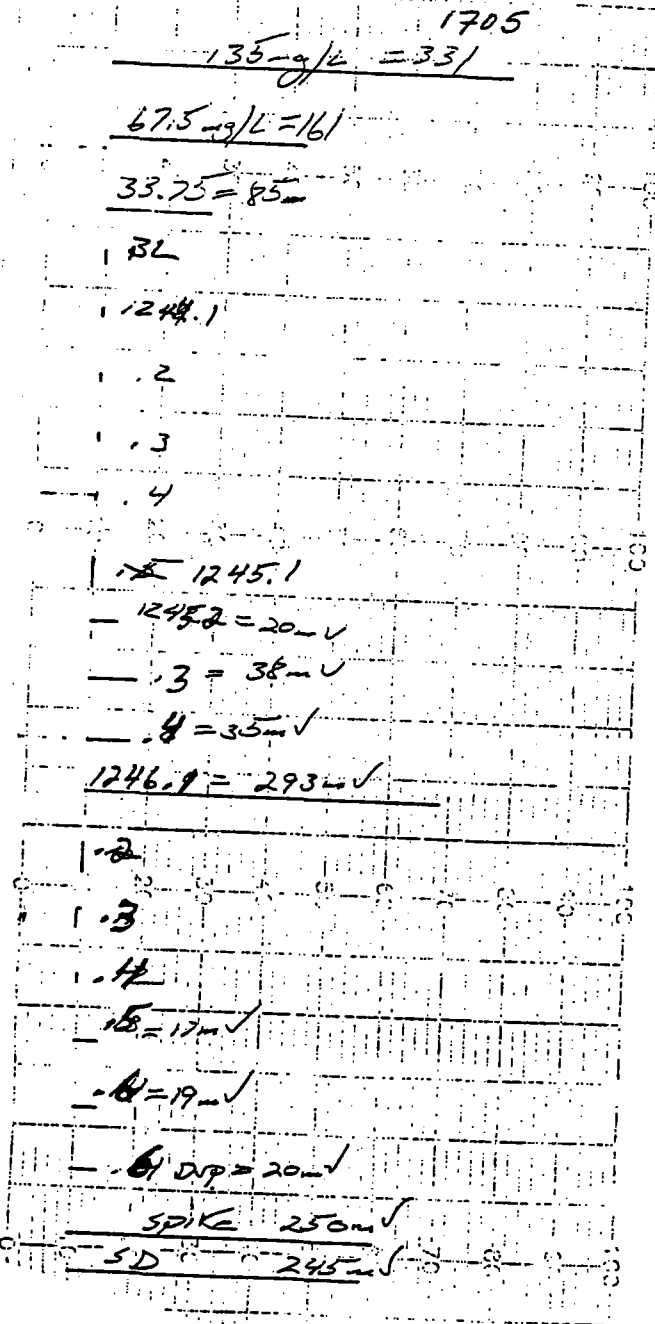 1705
135 mg/L = 331
67.5 mg/L = 161
33.75 = 85m
BL
1244.1
.2
.3
.4
1245.1
1245.2 = 20mV
.3 = 38mV
.4 = 35mV
1246.1 = 293mV
.2
.3
.4
.5 = 17mV
.6 = 19mV
.6 Dup = 20mV
Spike 250mV
SD 245mV